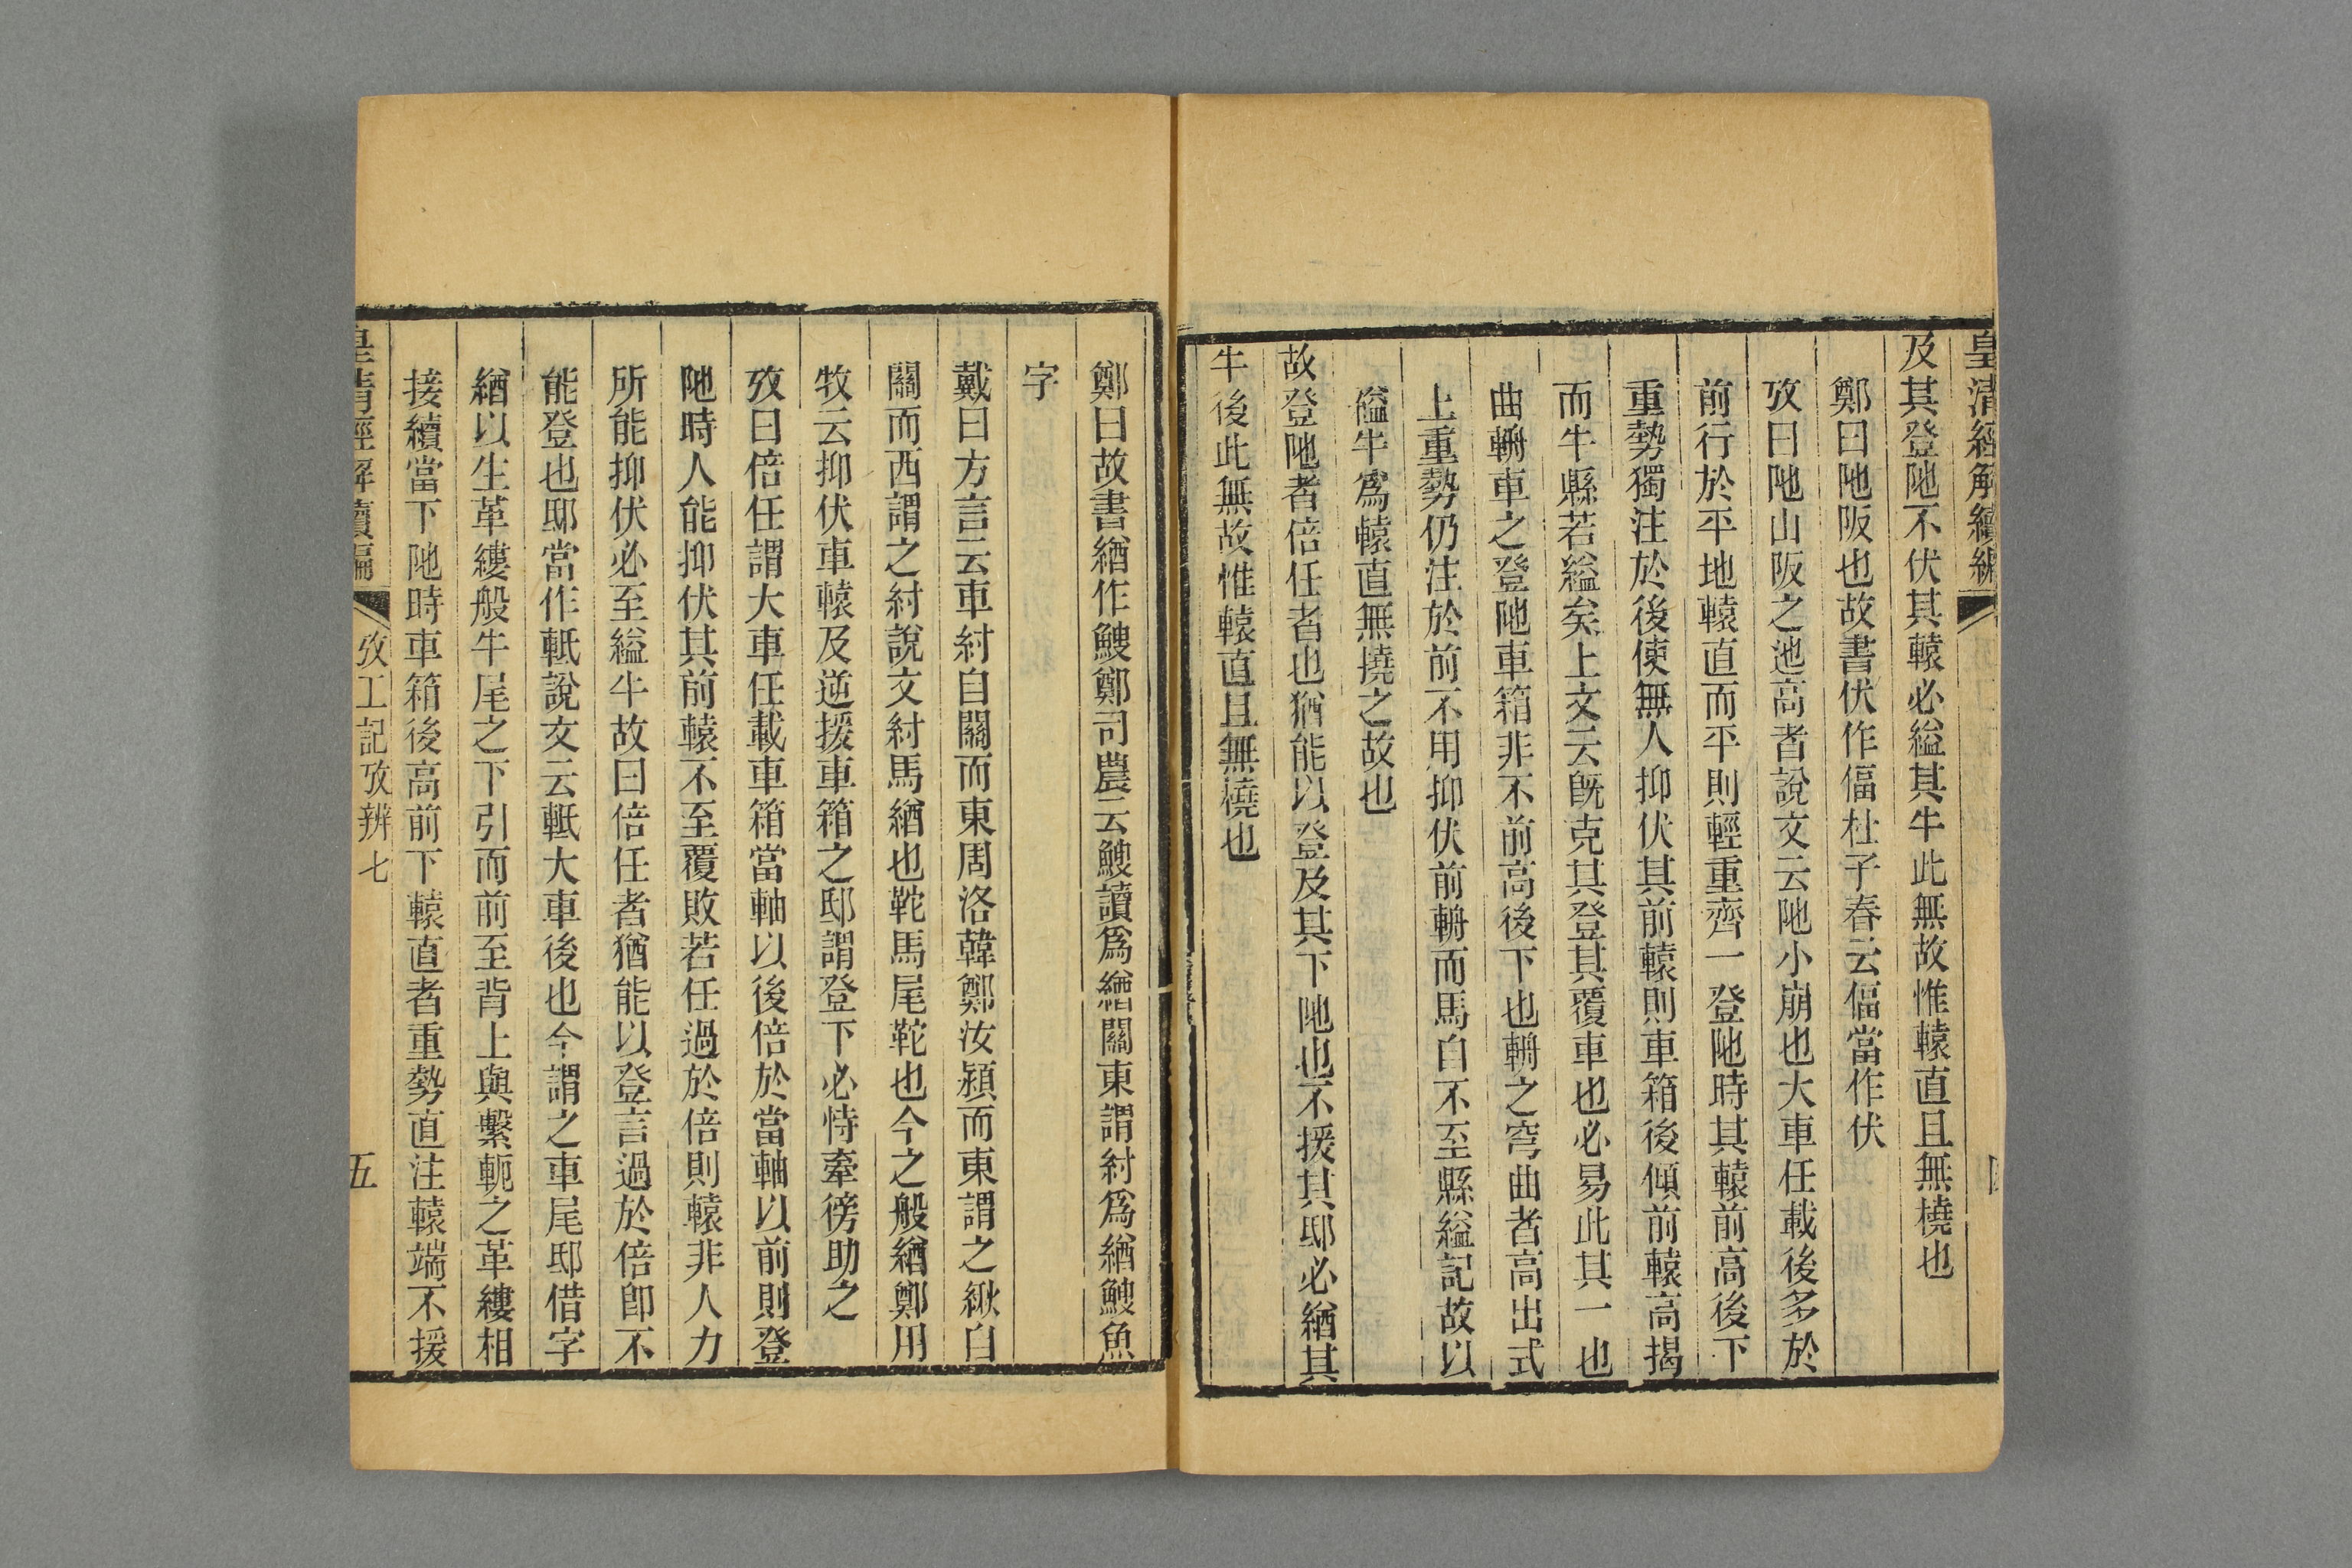 皇清經解續編
及其登阤不伏其轅必縊其牛此無故惟轅直且無橈也
鄭曰阤阪也故書伏作偪杜子春云偪當作伏
攷曰阤山阪之池高者說文云阤小崩也大車任載後多於
前行於平地轅直而平則輕重齊一登阤時其轅前高後下
重勢獨注於後使無人抑伏其前轅則車箱後傾前轅高揭
而牛縣若縊矣上文云既克其登其覆車也必易此其一也
曲輈車之登阤車箱非不前高後下也輈之穹曲者高出式
上重勢仍注於前不用抑伏前輈而馬自不至縣縊記故以
縊牛爲轅直無撓之故也
故登阤者倍任者也猶能以登及其下阤也不援其邸必緧其
牛後此無故惟轅直且無橈也
鄭曰故書緧作鰒鄭司農云鰒讀爲緧關東謂紂爲緧鰒魚
字
戴曰方言云車紂自關而東周洛韓鄭汝潁而東謂之緧自
關而西謂之紂說文紂馬緧也鞁馬尾鞁也今之般緧鄭用
牧云抑伏車轅及逆援車箱之邸謂登下必恃牽徬助之
攷曰倍任謂大車任載車箱當軸以後倍於當軸以前則登
阤時人能抑伏其前轅不至覆敗若任過於倍則轅非人力
所能抑伏必至縊牛故曰倍任者猶能以登言過於倍卽不
能登也邸當作軝說文云軧大車後也今謂之車尾邸借字
緧以生革縷般牛尾之下引而前至背上與繫軛之革縷相
接續當下阤時車箱後高前下轅直者重勢直注轅端不援
皇清經解續編
攷工記攷辨七
五